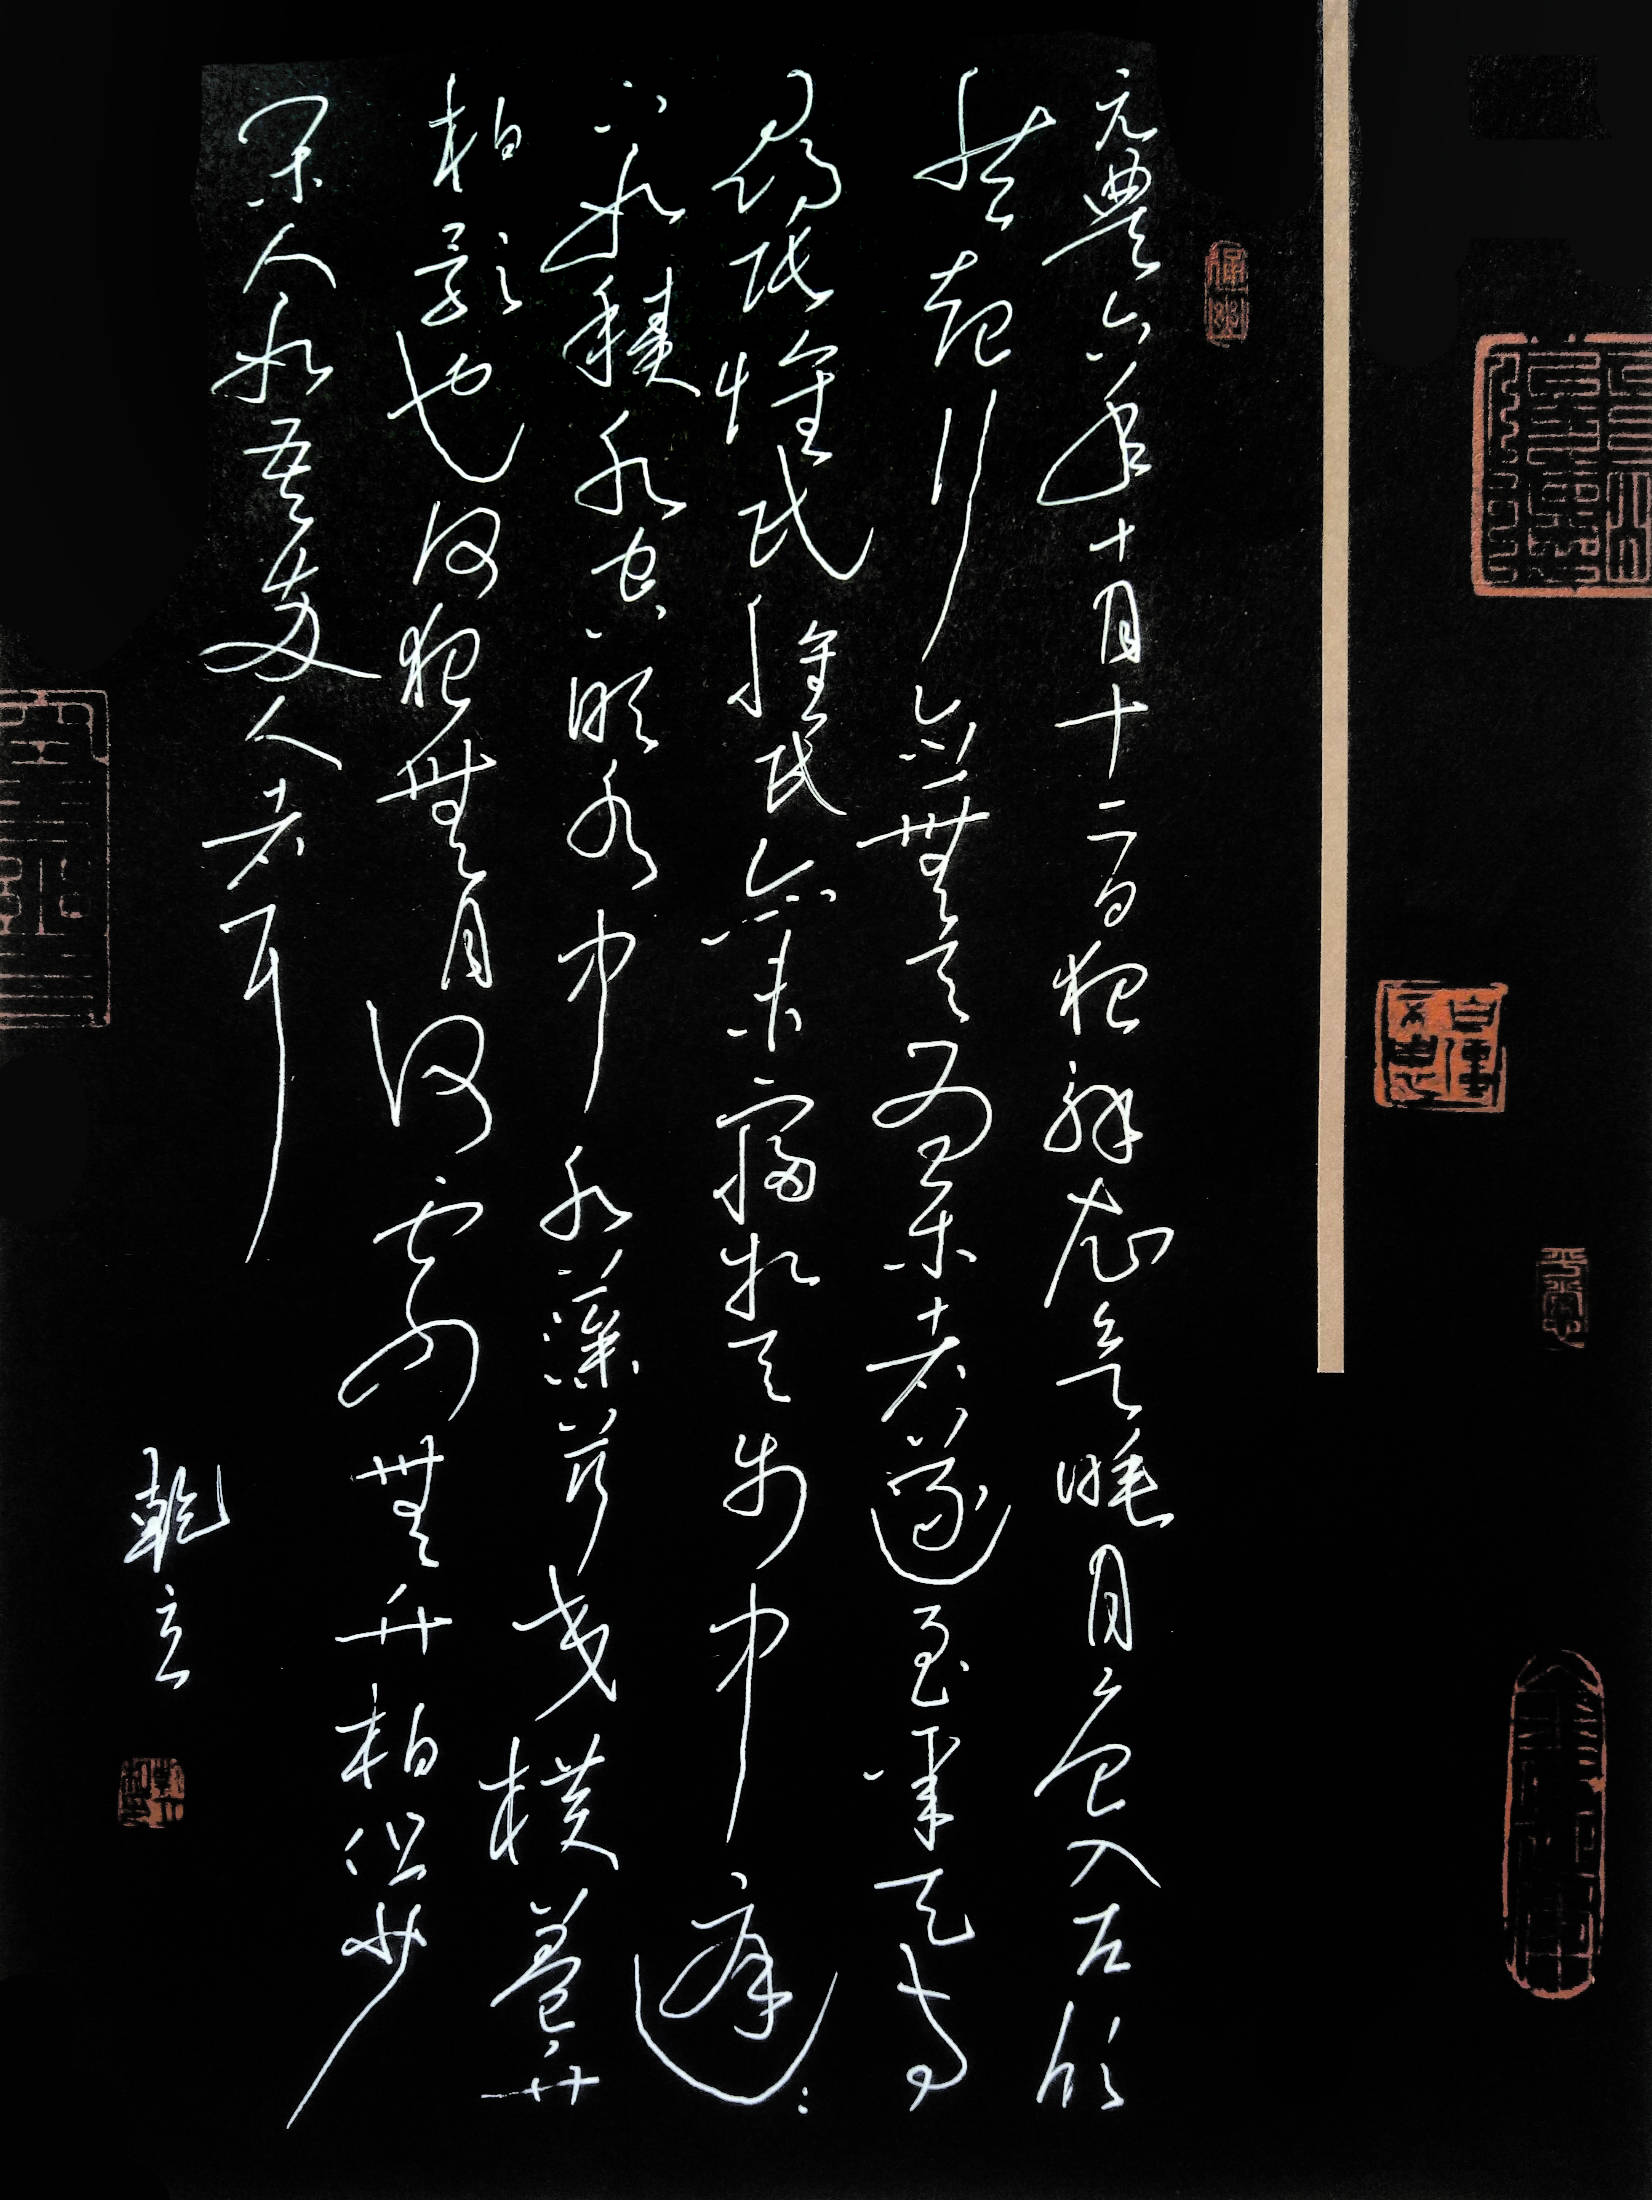 元豐六年十月十二日夜解衣欲睡月色入户欣
然起行念無與為樂者遂至承天寺
尋張懷民懷民亦未寢相與步中庭〻
下如積水空明水中水藻荇交橫蓋竹
柏影也何夜無月何處無竹柏但少
閑人如吾兩人者耳
乾立